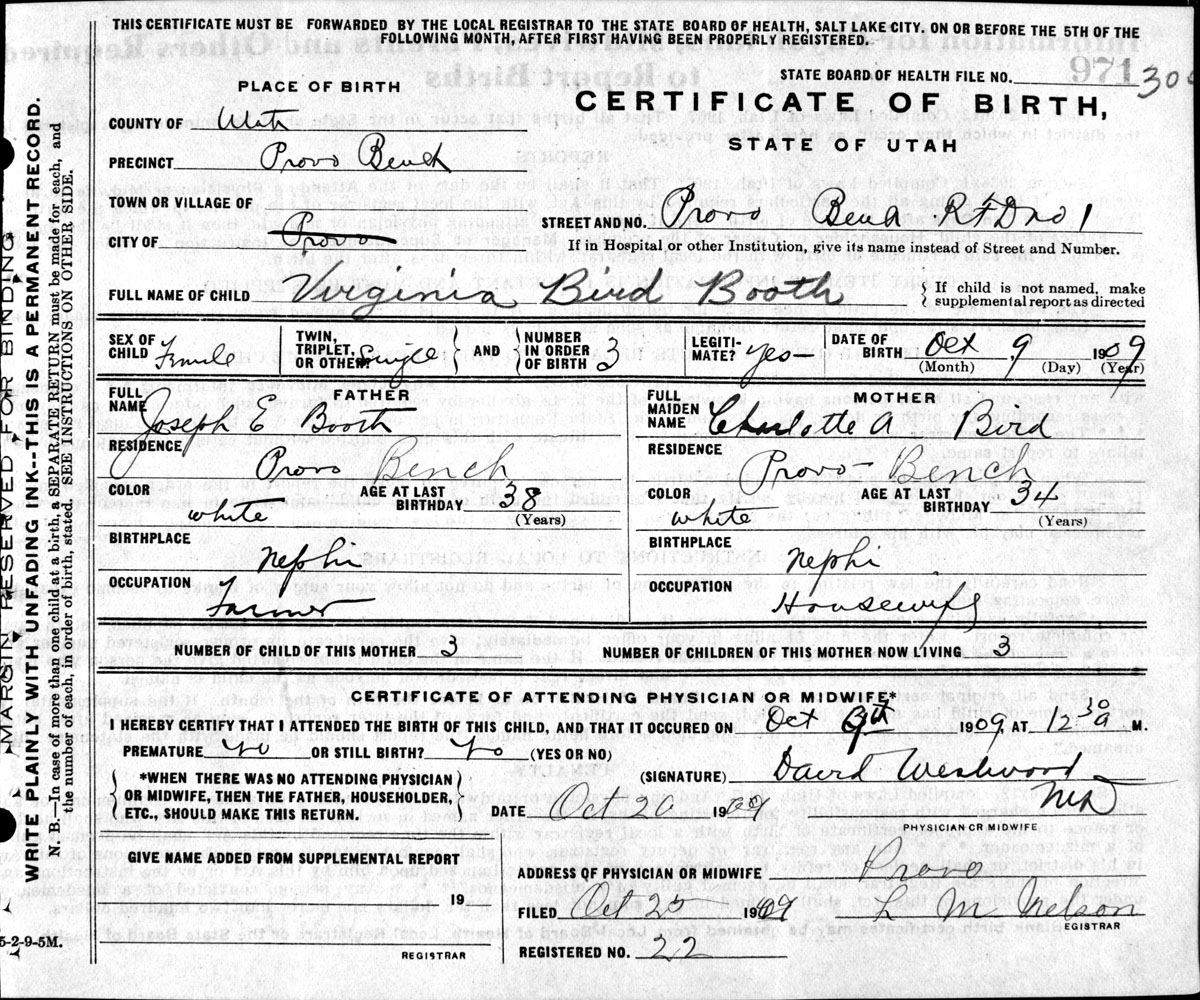 THIS CERTIFICATE MUST BE FORWARDED BY THE LOCAL REGISTRAR TO THE STATE BOARD OF HEALTH, SALT LAKE CITY. ON OR BEFORE THE 5TH OF THE
FOLLOWING MONTH, AFTER FIRST HAVING BEEN PROPERLY REGISTERED.
STATE BOARD OF HEALTH FILE NO.
PLACE OF BIRTH
CERTIFICATE OF BIRTH,
STATE OF UTAH
COUNTY OF Utah
PRECINCT Provo Bench
TOWN OR VILLAGE OF
CITY OF Provo
STREET AND NO. Provo Bench RFD no 1
If in Hospital or other Institution, give its name instead of Street and Number.
FULL NAME OF CHILD Virginia Bird Booth { If child is not named, make
supplemental report as directed
SEX OF CHILD Female TWIN, TRIPLET, OR OTHER? Single } AND { NUMBER IN ORDER OF BIRTH 3 LEGITI-MATE? yes DATE OF BIRTH Oct 9 1909
(Month) (Day) (Year)
FATHER
FULL NAME Joseph E Booth
RESIDENCE Provo Bench
COLOR white AGE AT LAST BIRTHDAY 38
(Years)
BIRTHPLACE Nephi
OCCUPATION Farmer
MOTHER
FULL MAIDEN NAME Charlotte A Bird
RESIDENCE Provo Bench
COLOR white AGE AT LAST BIRTHDAY 34
(Years)
BIRTHPLACE Nephi
OCCUPATION Housewife
NUMBER OF CHILD OF THIS MOTHER 3 NUMBER OF CHILDREN OF THIS MOTHER NOW LIVING 3
CERTIFICATE OF ATTENDING PHYSICIAN OR MIDWIFE*
I HEREBY CERTIFY THAT I ATTENDED THE BIRTH OF THIS CHILD, AND THAT IT OCCURED ON Oct 9th 1909, AT 12 30 a M.
PREMATURE no OR STILL BIRTH? no (YES OR NO)
*WHEN THERE WAS NO ATTENDING PHYSICIAN
OR MIDWIFE, THEN THE FATHER, HOUSEHOLDER,
ETC., SHOULD MAKE THIS RETURN.
(SIGNATURE) David Westwood
MD
DATE Oct 20 1909
PHYSICIAN OR MIDWIFE
GIVE NAME ADDED FROM SUPPLEMENTAL REPORT
19
REGISTRAR
ADDRESS OF PHYSICIAN OR MIDWIFE Provo
FILED Oct 25 1909 L M Nelson
REGISTRAR
REGISTERED NO. 22
MARGIN RESERVED FOR BINDING
WRITE PLAINLY WITH UNFADING INK--THIS IS A PERMANENT RECORD.
N. B.—In case of more than one child at a birth, a SEPARATE RETURN must be made for each, and
the number of each, in order of birth, stated. SEE INSTRUCTIONS ON OTHER SIDE.
5-2-9-5M.